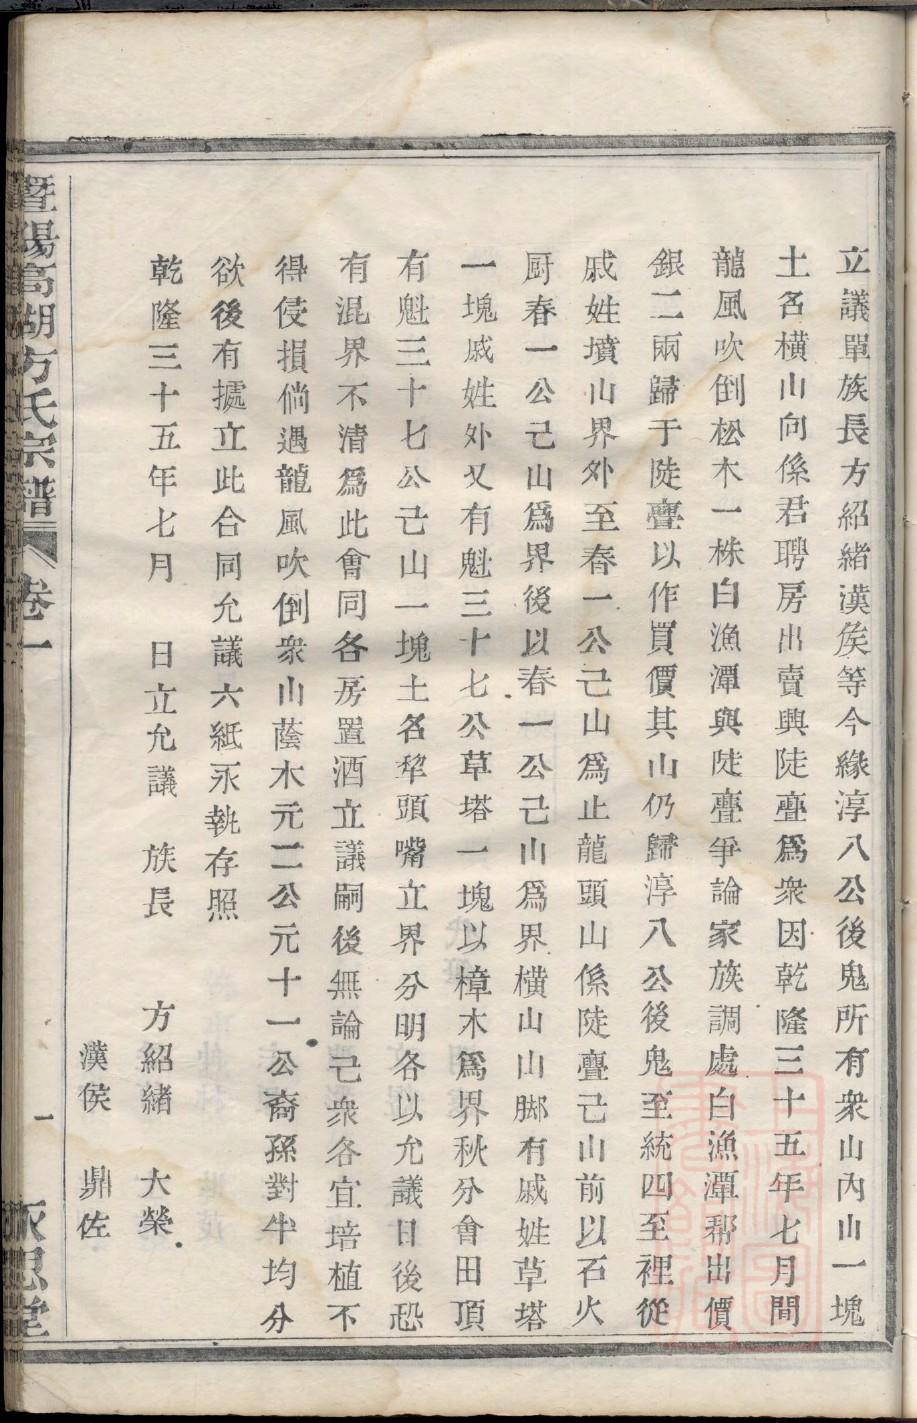 立議單族長方紹緒漢侯等今緣淳八公後鬼所有衆山內山一塊
土名橫山向係君聘房出賣與陡亹爲衆因乾隆三十五年七月間
龍風吹倒松木一株白漁潭與陡亹爭論家族調處白漁潭帮出價
銀二兩歸于陡亹以作買價其山仍歸淳八公後鬼至統四至裡從
戚姓墳山界外至春一公己山爲止龍頭山係陡亹己山前以石火
厨春一公己山爲界後以春一公己山爲界橫山山脚有戚姓草塔
一塊戚姓外又有魁三十七公草塔一塊以樟木爲界秋分會田頂
有魁三十七公己山一塊土名犂頭嘴立界分明各以允議日後恐
有混界不清爲此會同各房置酒立議嗣後無論己衆各宜培植不
得侵損倘遇龍風吹倒衆山蔭木元二公元十一公裔孫對半均分
欲後有據立此合同允議六紙永執存照
乾隆三十五年七月 日立允議 族長 方紹緒 大榮
漢侯 鼎佐
暨陽高湖方氏宗譜 卷一 一 思堂